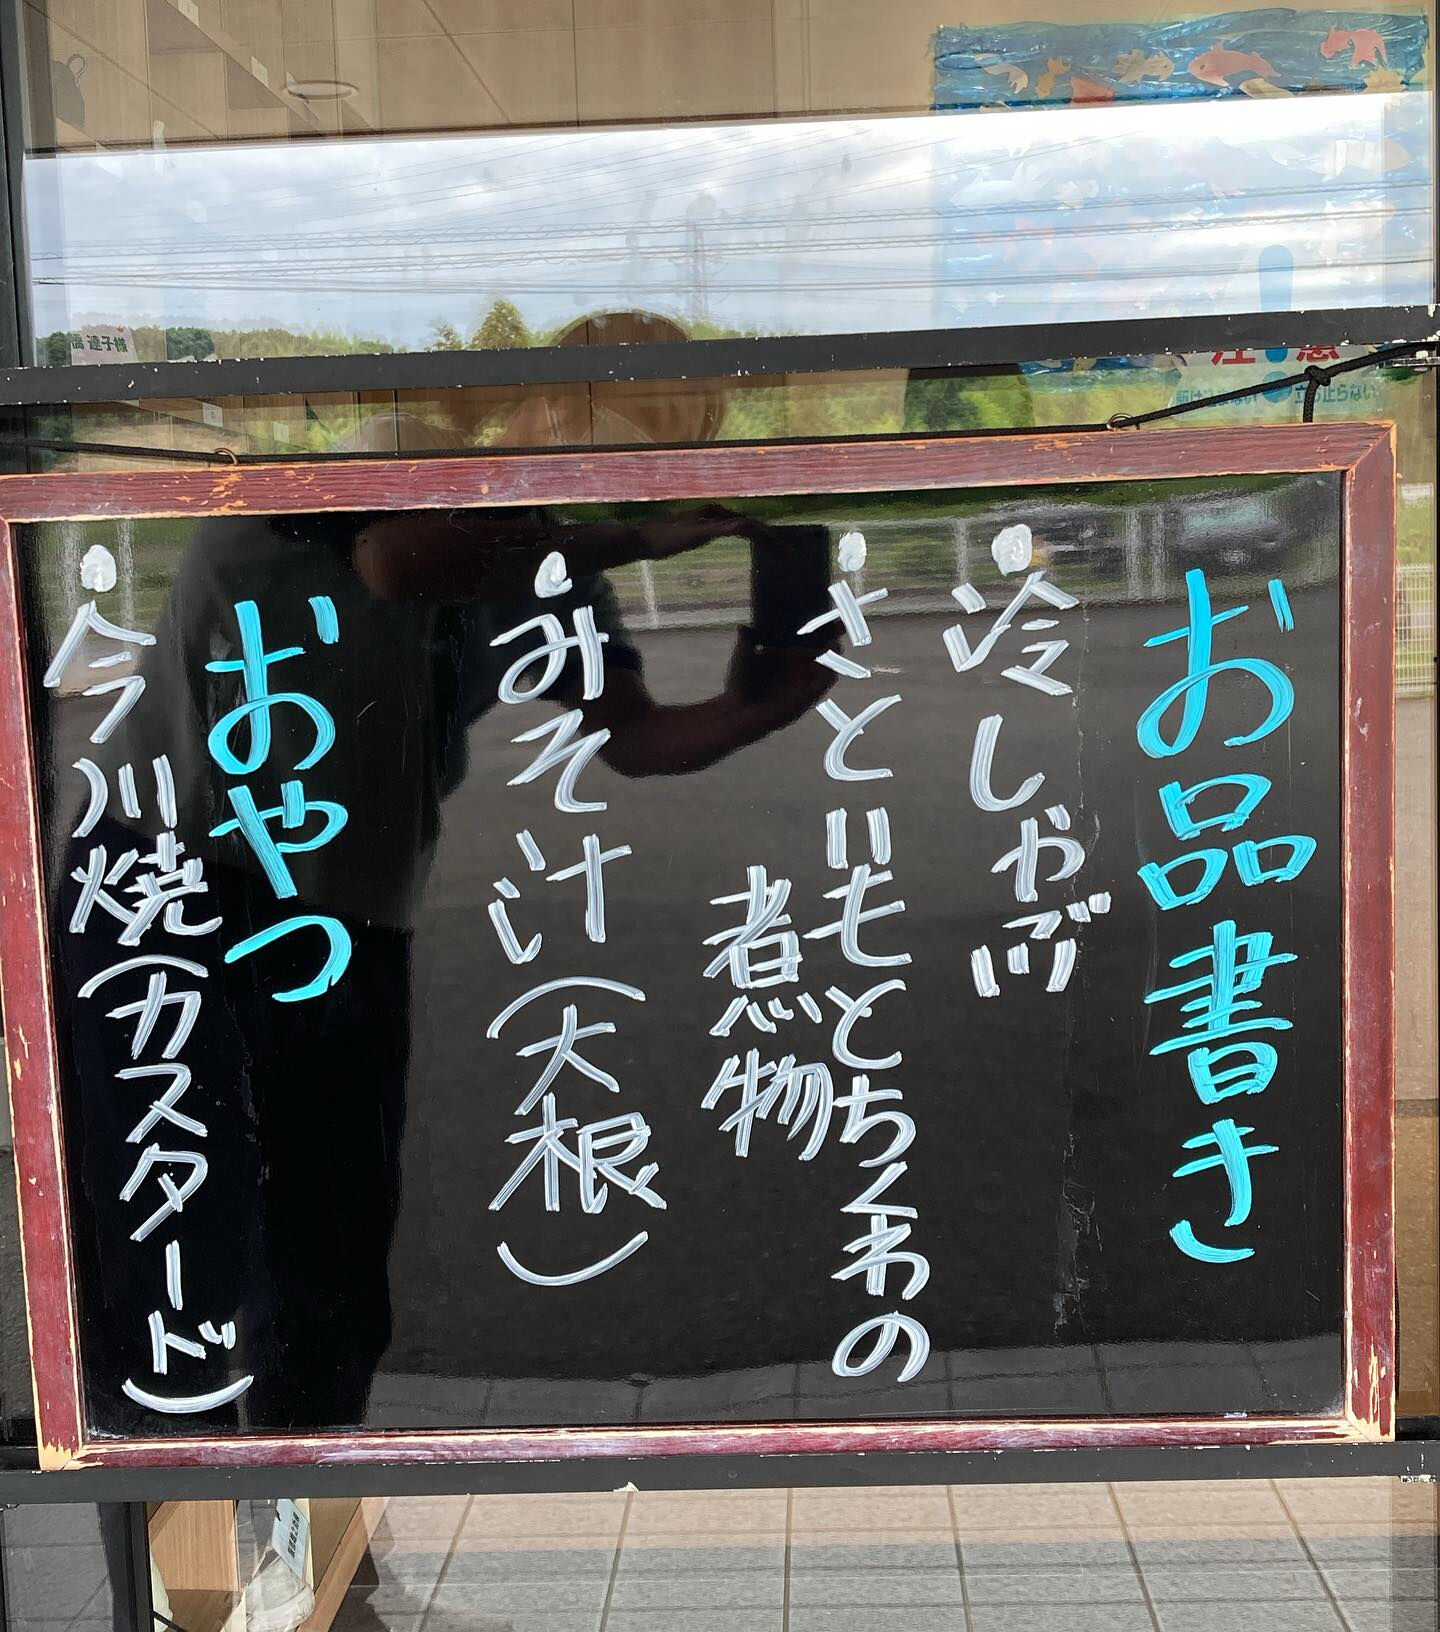 お品書き
冷しゃぶ
さといもとちくわの
煮物
みそ汁(大根)
おやつ
今川焼(カスタード)
立ち止らない